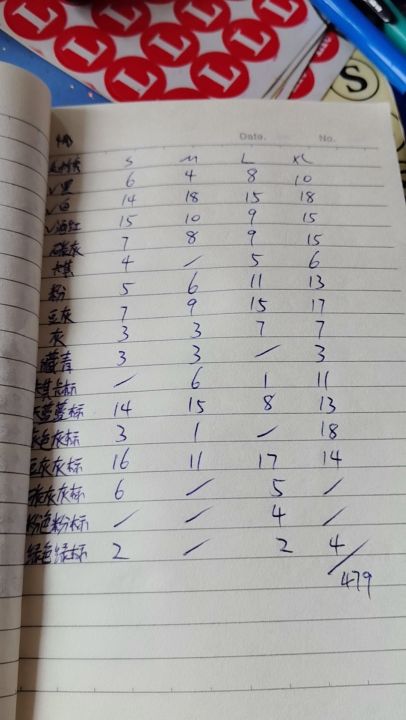 L L L L L
L L L L
S
Date. No.
S M L XL
✓黑 6 4 8 10
✓白 14 18 15 18
✓酒红 15 10 9 15
碳灰 7 8 9 15
卡其 4 / 5 6
粉 5 6 11 13
豆灰 7 9 15 17
灰 3 3 7 7
藏青 3 3 / 3
卡其卡标 / 6 1 11
标 14 15 8 13
灰色灰标 3 1 / 18
豆灰灰标 16 11 17 14
碳灰灰标 6 / 5 /
粉色粉标 / / 4 /
绿色绿标 2 / 2 4
/479